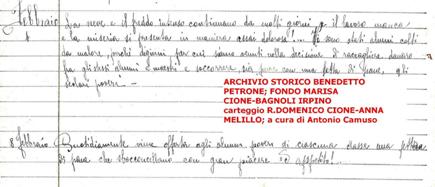 Febbraio
La neve e il freddo intenso continuano da molti giorni, e il lavoro manca
e la miseria si presenta in maniera assai dolorosa!... Vi sono stati alunni colti
da malore, perché digiuni, per cui siamo venuti nella decisione di raccogliere, danaro
fra gli stessi alunni e maestri e soccorrere sia pure con una fetta di pane, gli
scolari poveri -
ARCHIVIO STORICO BENEDETTO
PETRONE; FONDO MARISA
CIONE-BAGNOLI IRPINO
carteggio R.DOMENICO CIONE-ANNA
MELILLO; a cura di Antonio Camuso
8 febbraio. Quotidianamente viene offerta agli alunni poveri di ciascuna classe una fettina
di pane che sbocconcellano con gran piacere ed appetito!..